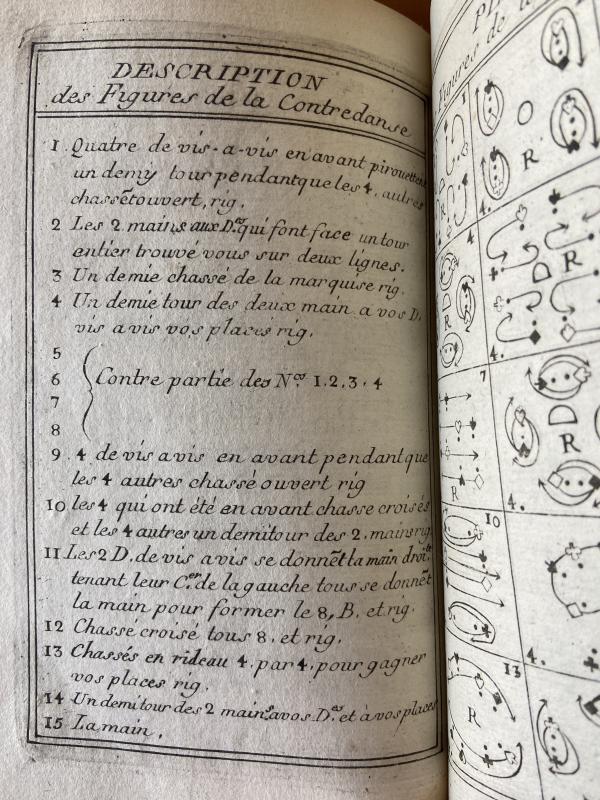 DESCRIPTION
des Figures de la Contredanse
1. Quatre de vis-a-vis en avant pirouettent
un demiy tour pendantque les 4. autres
chassẽtouvert, rig.
2 Les 2. mains aux D.es qui font face un tour
entier trouvé vous sur deux lignes.
3 Un demie chassé de la marquise rig.
4 Un demie tour des deux main a vos D.
vis a vis vos places rig.
5
6 Contre partie des N.os 1. 2. 3. 4
7
8
9. 4 de vis a vis en avant pendant que
les 4 autres chassé ouvert rig
10. les 4 qui ont été en avant chasse croisés
et les 4 autres un demitour des 2. mains rig.
11 Les 2 D. de vis avis se donnẽt la main droite
tenant leur C.er de la gauche tous se donnẽt
la main pour former le 8, B. et rig.
12 Chassé croisé tous 8. et rig.
13 Chassés en rideau 4. par 4. pour gagner
vos places rig.
14 Un demi tour des 2 mains avos D.es et à vos places
15 La main.
Figures de la
1
R
4.
4
D
R
R
4.
7
D
R
R
4.
10
4.
13
R